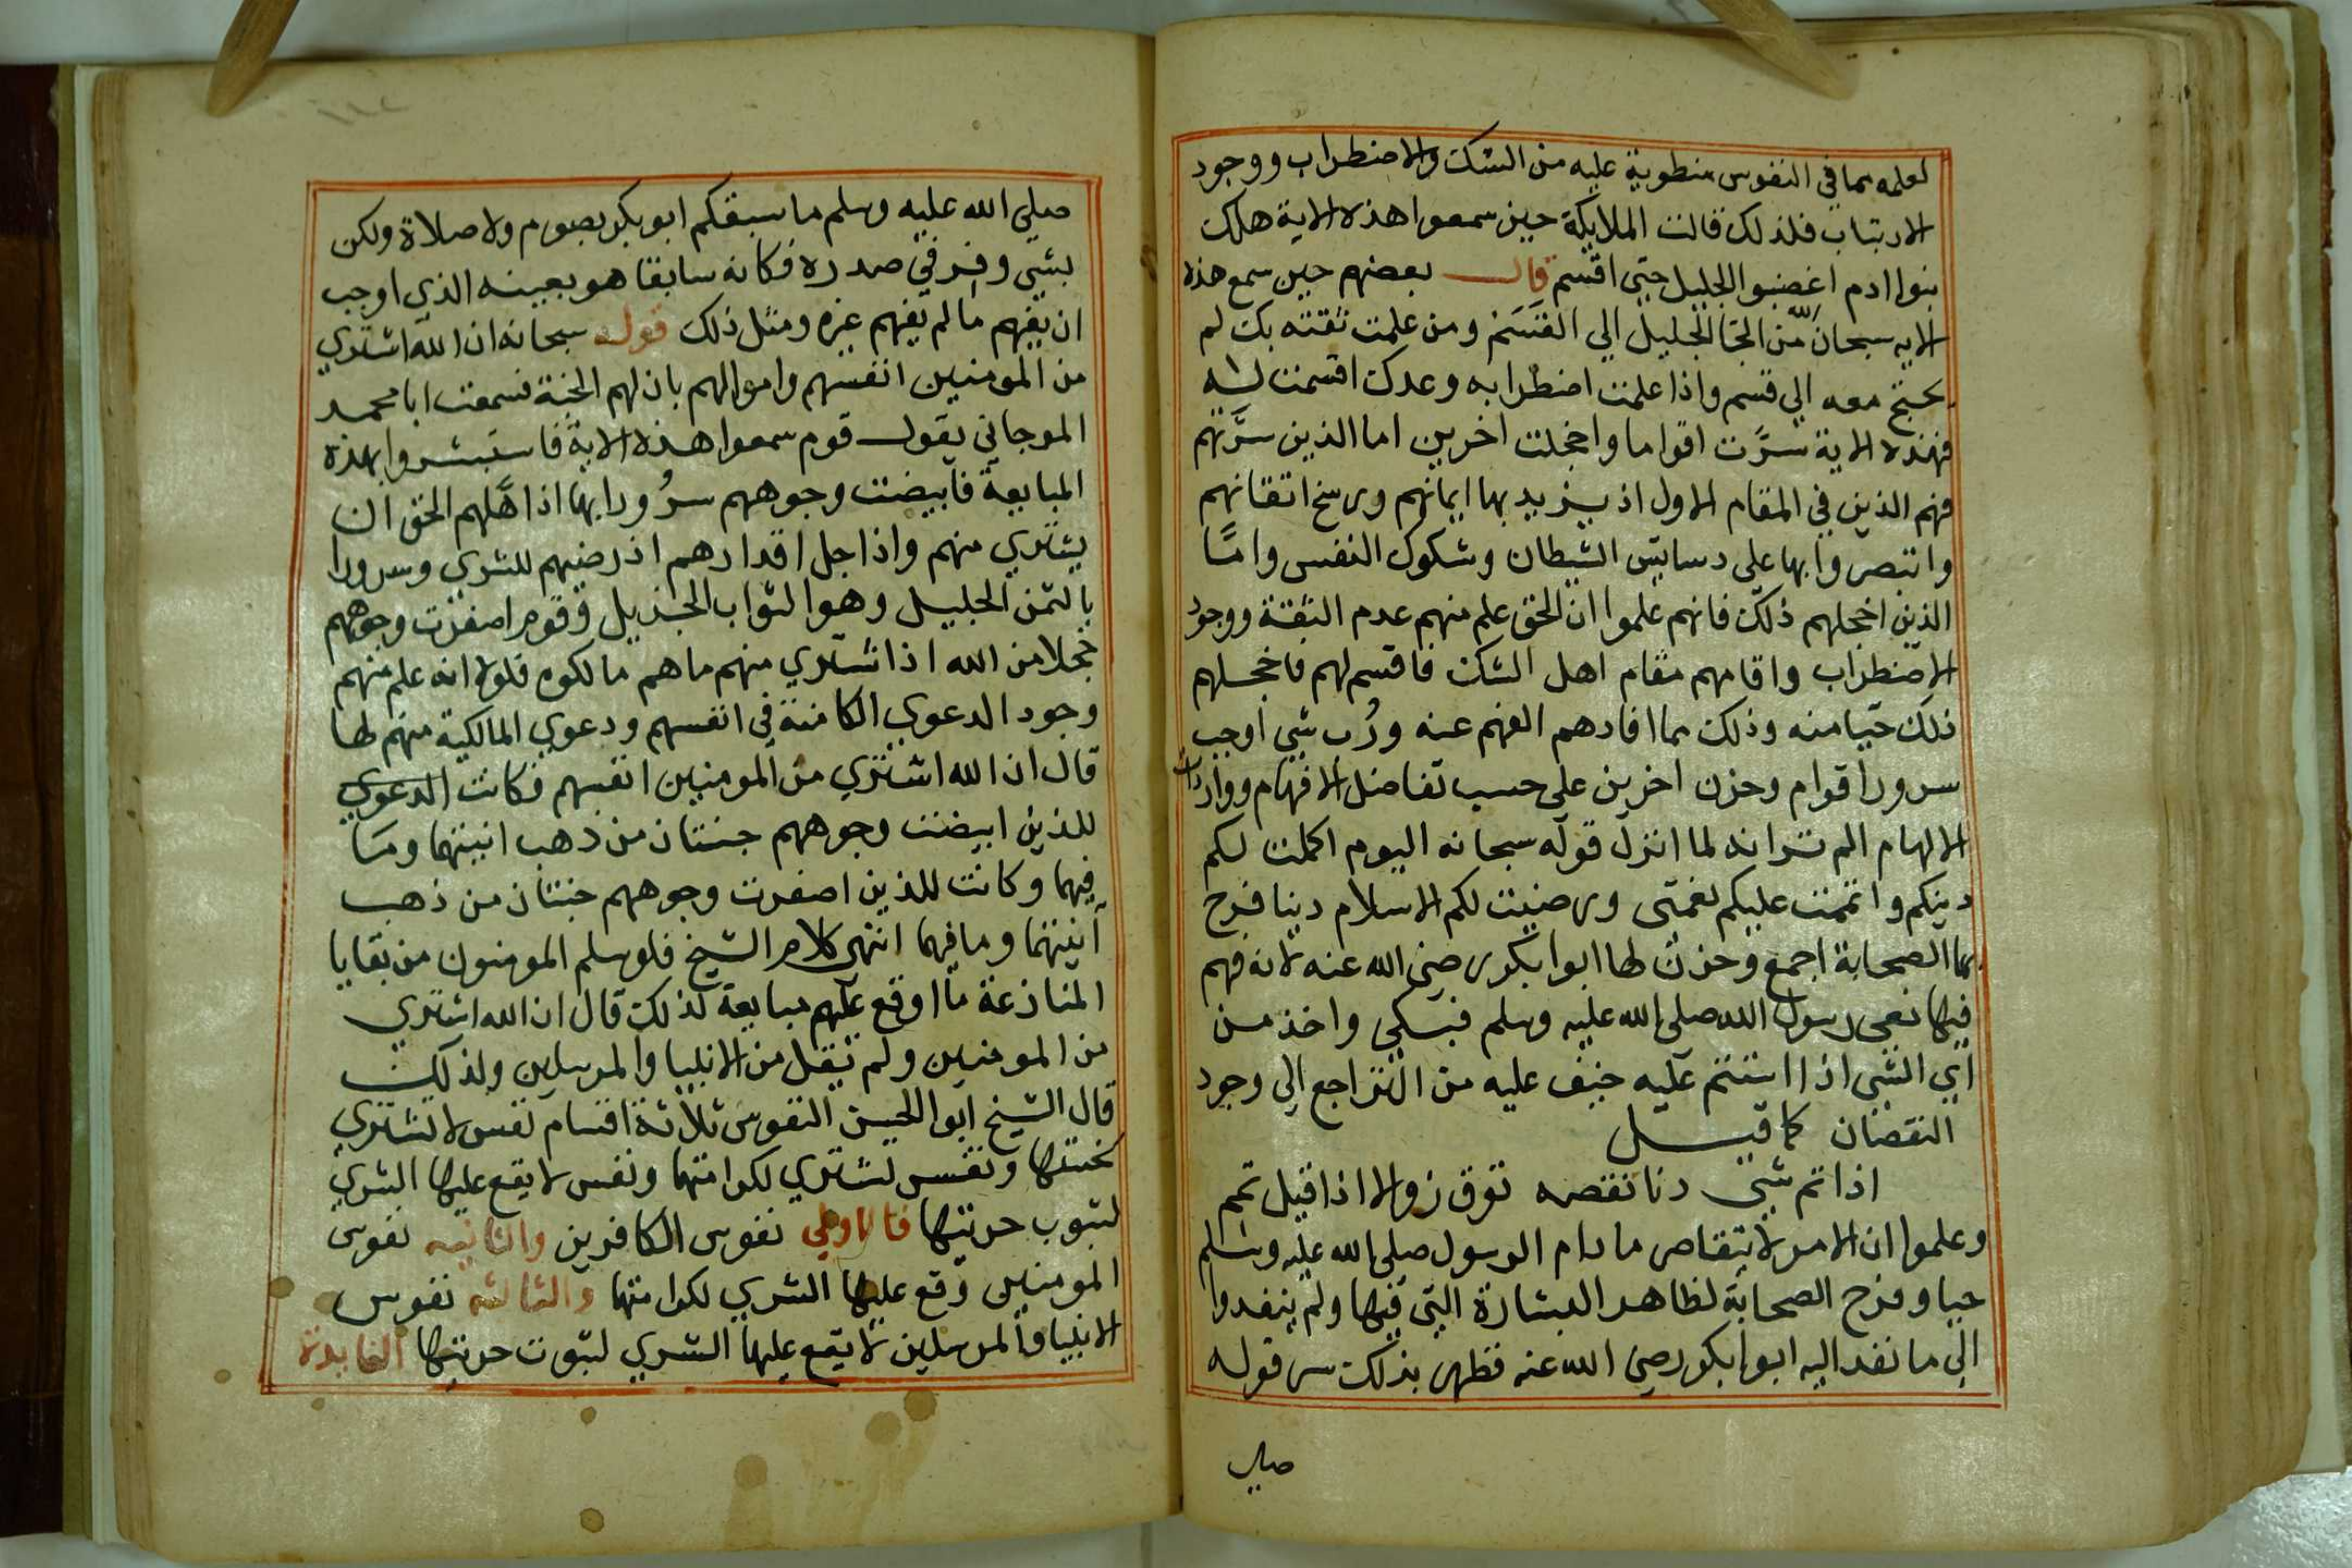 لعلمه بما في النفوس منطوية عليه من الشك والاضطراب ووجود
الارتياب فلذلك قالت الملايكة حين سمعوا هذه الاية هلك
بنوا ادم اغضبوا الجليل حتى اقسم قال بعضهم حين سمع هذه
الايه سبحان الله من الجا الجليل الي القسم ومن علمت ثقته بك لم
يحتج معه الي قسم واذا علمت اضطرابه وعدك اقسمت له
فهذه الاية سرَّت اقواما واخجلت اخرين اما الذين سرَّتهم
فهم الذين في المقام الاول اذ يزيد بها ايمانهم ورسخ اتقانهم
وانتصروا بها على دسايس الشيطان وشكوك النفس وامّا
الذين اخجلهم ذلك فانهم علموا ان الحق علم منهم عدم الثقة ووجود
الاضطراب واقامهم مقام اهل الشك فاقسم لهم فاخجلهم
ذلك حيا منه وذلك مما افادهم الفهم عنه ورُب شي اوجب
سرور اقوام وحزن اخرين على حسب تفاضل الافهام وواردات
الالهام الم تر انه لما انزل قوله سبحانه اليوم اكملت لكم
دينكم واتممت عليكم نعمتى ورضيت لكم الاسلام دينا فرح
بها الصحابة اجمع وحزن لها ابوا بكر رضى الله عنه لانه فهم
فيها نعى رسول الله صلى الله عليه وسلم فبكي واخذ من
اي الشى اذا استتم عليه خيف عليه من التراجع الي وجود
النقصان كما قيل
اذا تم شي دنا نقصه توق زوالا اذا قيل تم
وعلموا ان الامر لا يتقاصر ما دام الرسول صلى الله عليه وسلم
حيا وفرح الصحابة لظاهر البشارة التي فيها ولم ينفدوا
الى ما نفد اليه ابوا بكر رضى الله عنه فظهر بذلك سر قوله
صلى
صلي الله عليه وسلم ما سبقكم ابو بكر بصوم ولا صلاة ولكن
بشي وقر في صدره فكانه سابقا هو بعينه الذي اوجب
ان يفهم ما لم يفهم غيره ومثل ذلك قوله سبحانه ان الله اشتري
من المومنين انفسهم واموالهم بان لهم الجنة فسمعت ابا محمد
المرجاني يقول قوم سمعوا هذه الاية فاستبشروا بهذه
المبايعة فابيضت وجوههم سرُورا بها اذا هَّلهم الحق ان
يشتري منهم واذا جل اقدارهم اذ رضيهم للشري وسرورا
بالثمن الجليل وهو الثواب الجزيل وقوم اصفرت وجوههم
خجلا من الله اذا اشتري منهم ما هم مالكوه فلولا انه علم منهم
وجود الدعوي الكامنة في انفسهم ودعوي المالكية منهم لها
قال ان الله اشتري من المومنين انفسهم فكانت الدعوي
للذين ابيضت وجوههم جنتان من ذهب انيتهما وما
فيهما وكانت للذين اصفرت وجوههم جنتان من ذهب
آنيتهما وما فيهما انتهى كلام الشيخ فلو سلم المومنون من بقايا
المنازعة ما اوقع عليهم مبايعة لذلك قال ان الله اشتري
من المومنين ولم يقل من الانبيا والمرسلين ولذلك
قال الشيخ ابو الحسن النفوس ثلاثة اقسام نفس لا تشتري
لخستها ونفس تشتري لكرامتها ونفس لا يقع عليها الشري
لثبوت حريتها فالاولي نفوس الكافرين والثانيه نفوس
المومنين وقع عليها الشري لكرامتها والثالثه نفوس
الانبيا والمرسلين لا يقع عليها الشري لثبوت حريتها الفايدة